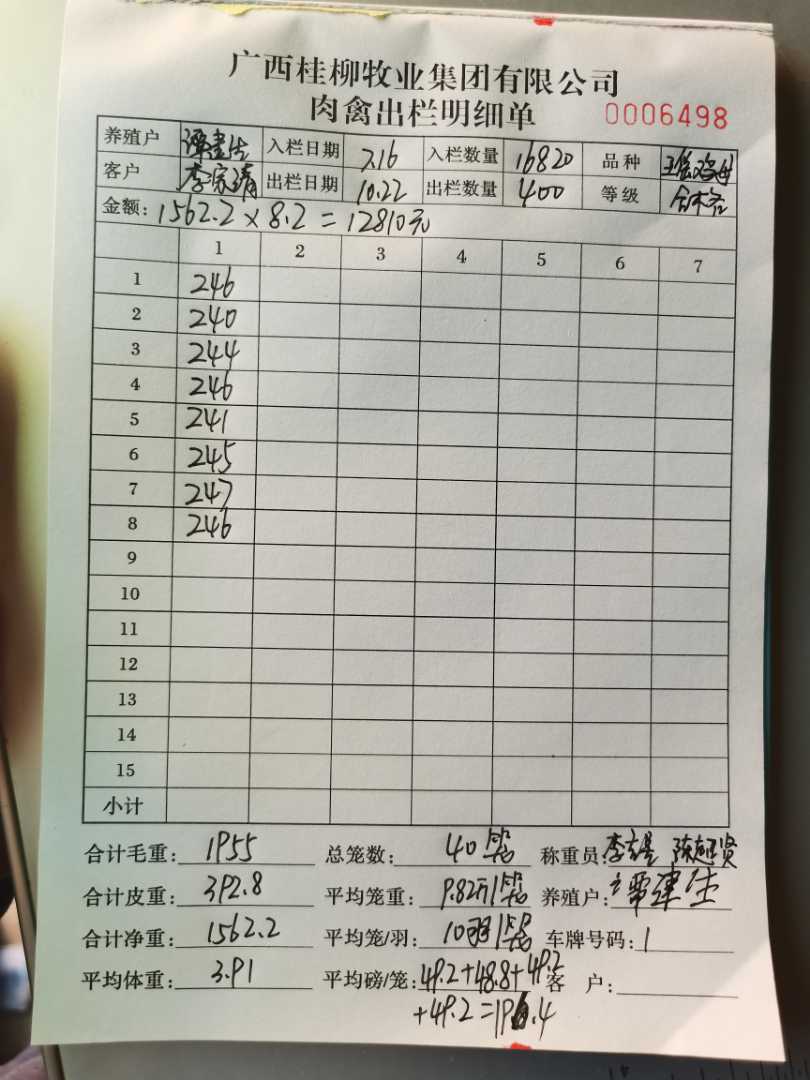 广西桂柳牧业集团有限公司
肉禽出栏明细单 0006498
养殖户 入栏日期 7.16 入栏数量 16820 品种
客户 李家靖 出栏日期 10.22 出栏数量 400 等级 合格
金额: 1562.2 × 8.2 = 12810元
1 2 3 4 5 6 7
1 246
2 240
3 244
4 246
5 241
6 245
7 247
8 246
9
10
11
12
13
14
15
小计
合计毛重: 1955 总笼数: 40笼 称重员:
合计皮重: 392.8 平均笼重: 9.82斤/笼 养殖户:
合计净重: 1562.2 平均笼/羽: 10羽/笼 车牌号码: 1
平均体重: 3.91 平均磅/笼: 49.2+48.8+49.2 客 户:
+49.2=196.4